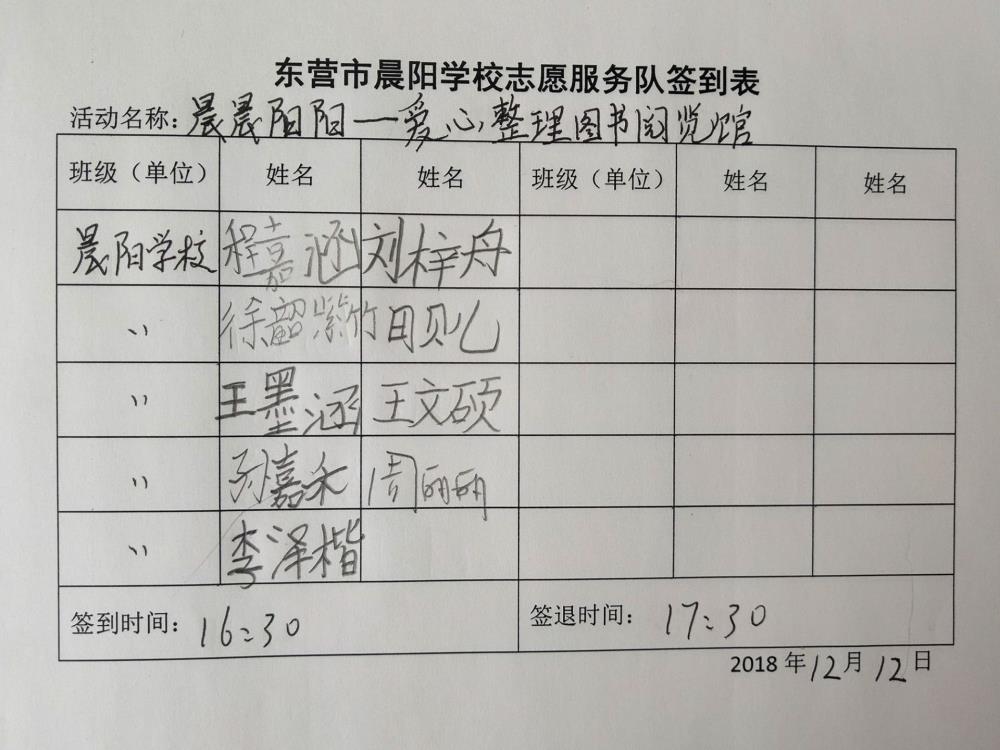 东营市晨阳学校志愿服务队签到表
活动名称:晨晨阳阳一爱心,整理图书阅览馆
班级（单位） 姓名 姓名 班级（单位） 姓名 姓名
晨阳学校 程嘉涵 刘梓舟
〃 徐韶紫竹 田贝儿
〃 王墨涵 王文硕
〃 孙嘉禾 周丽丽
〃 李泽楷
签到时间: 16:30 签退时间: 17:30
2018 年 12 月 12 日